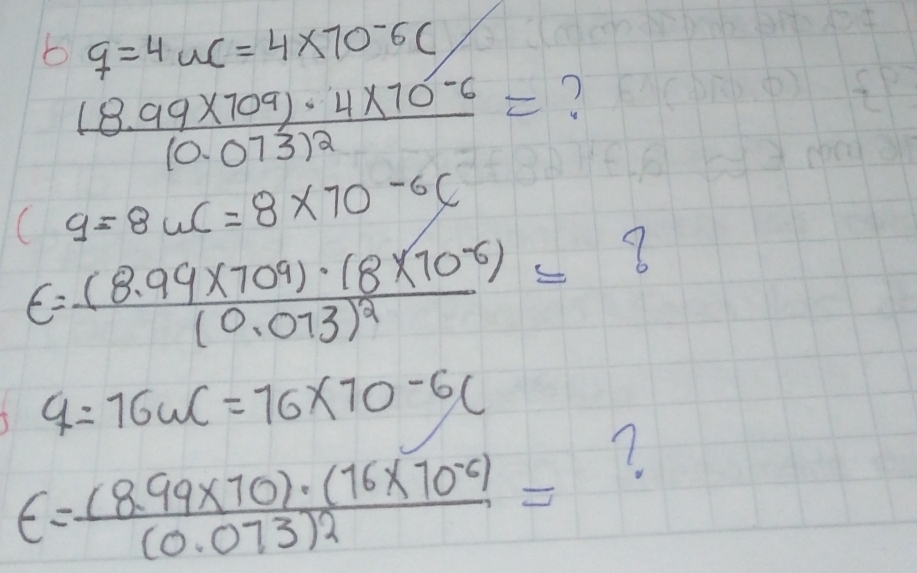 b q=4 uC = 4×10⁻⁶C
(8.99×10⁹)·4×10⁻⁶ = ?
(0.013)²
C q=8 uC = 8×10⁻⁶C
E=(8.99×10⁹)·(8×10⁻⁶) = ?
(0.013)²
q=16uC = 16×10⁻⁶C
E=(8.99×10)·(16×10⁻⁶) = ?
(0.013)²